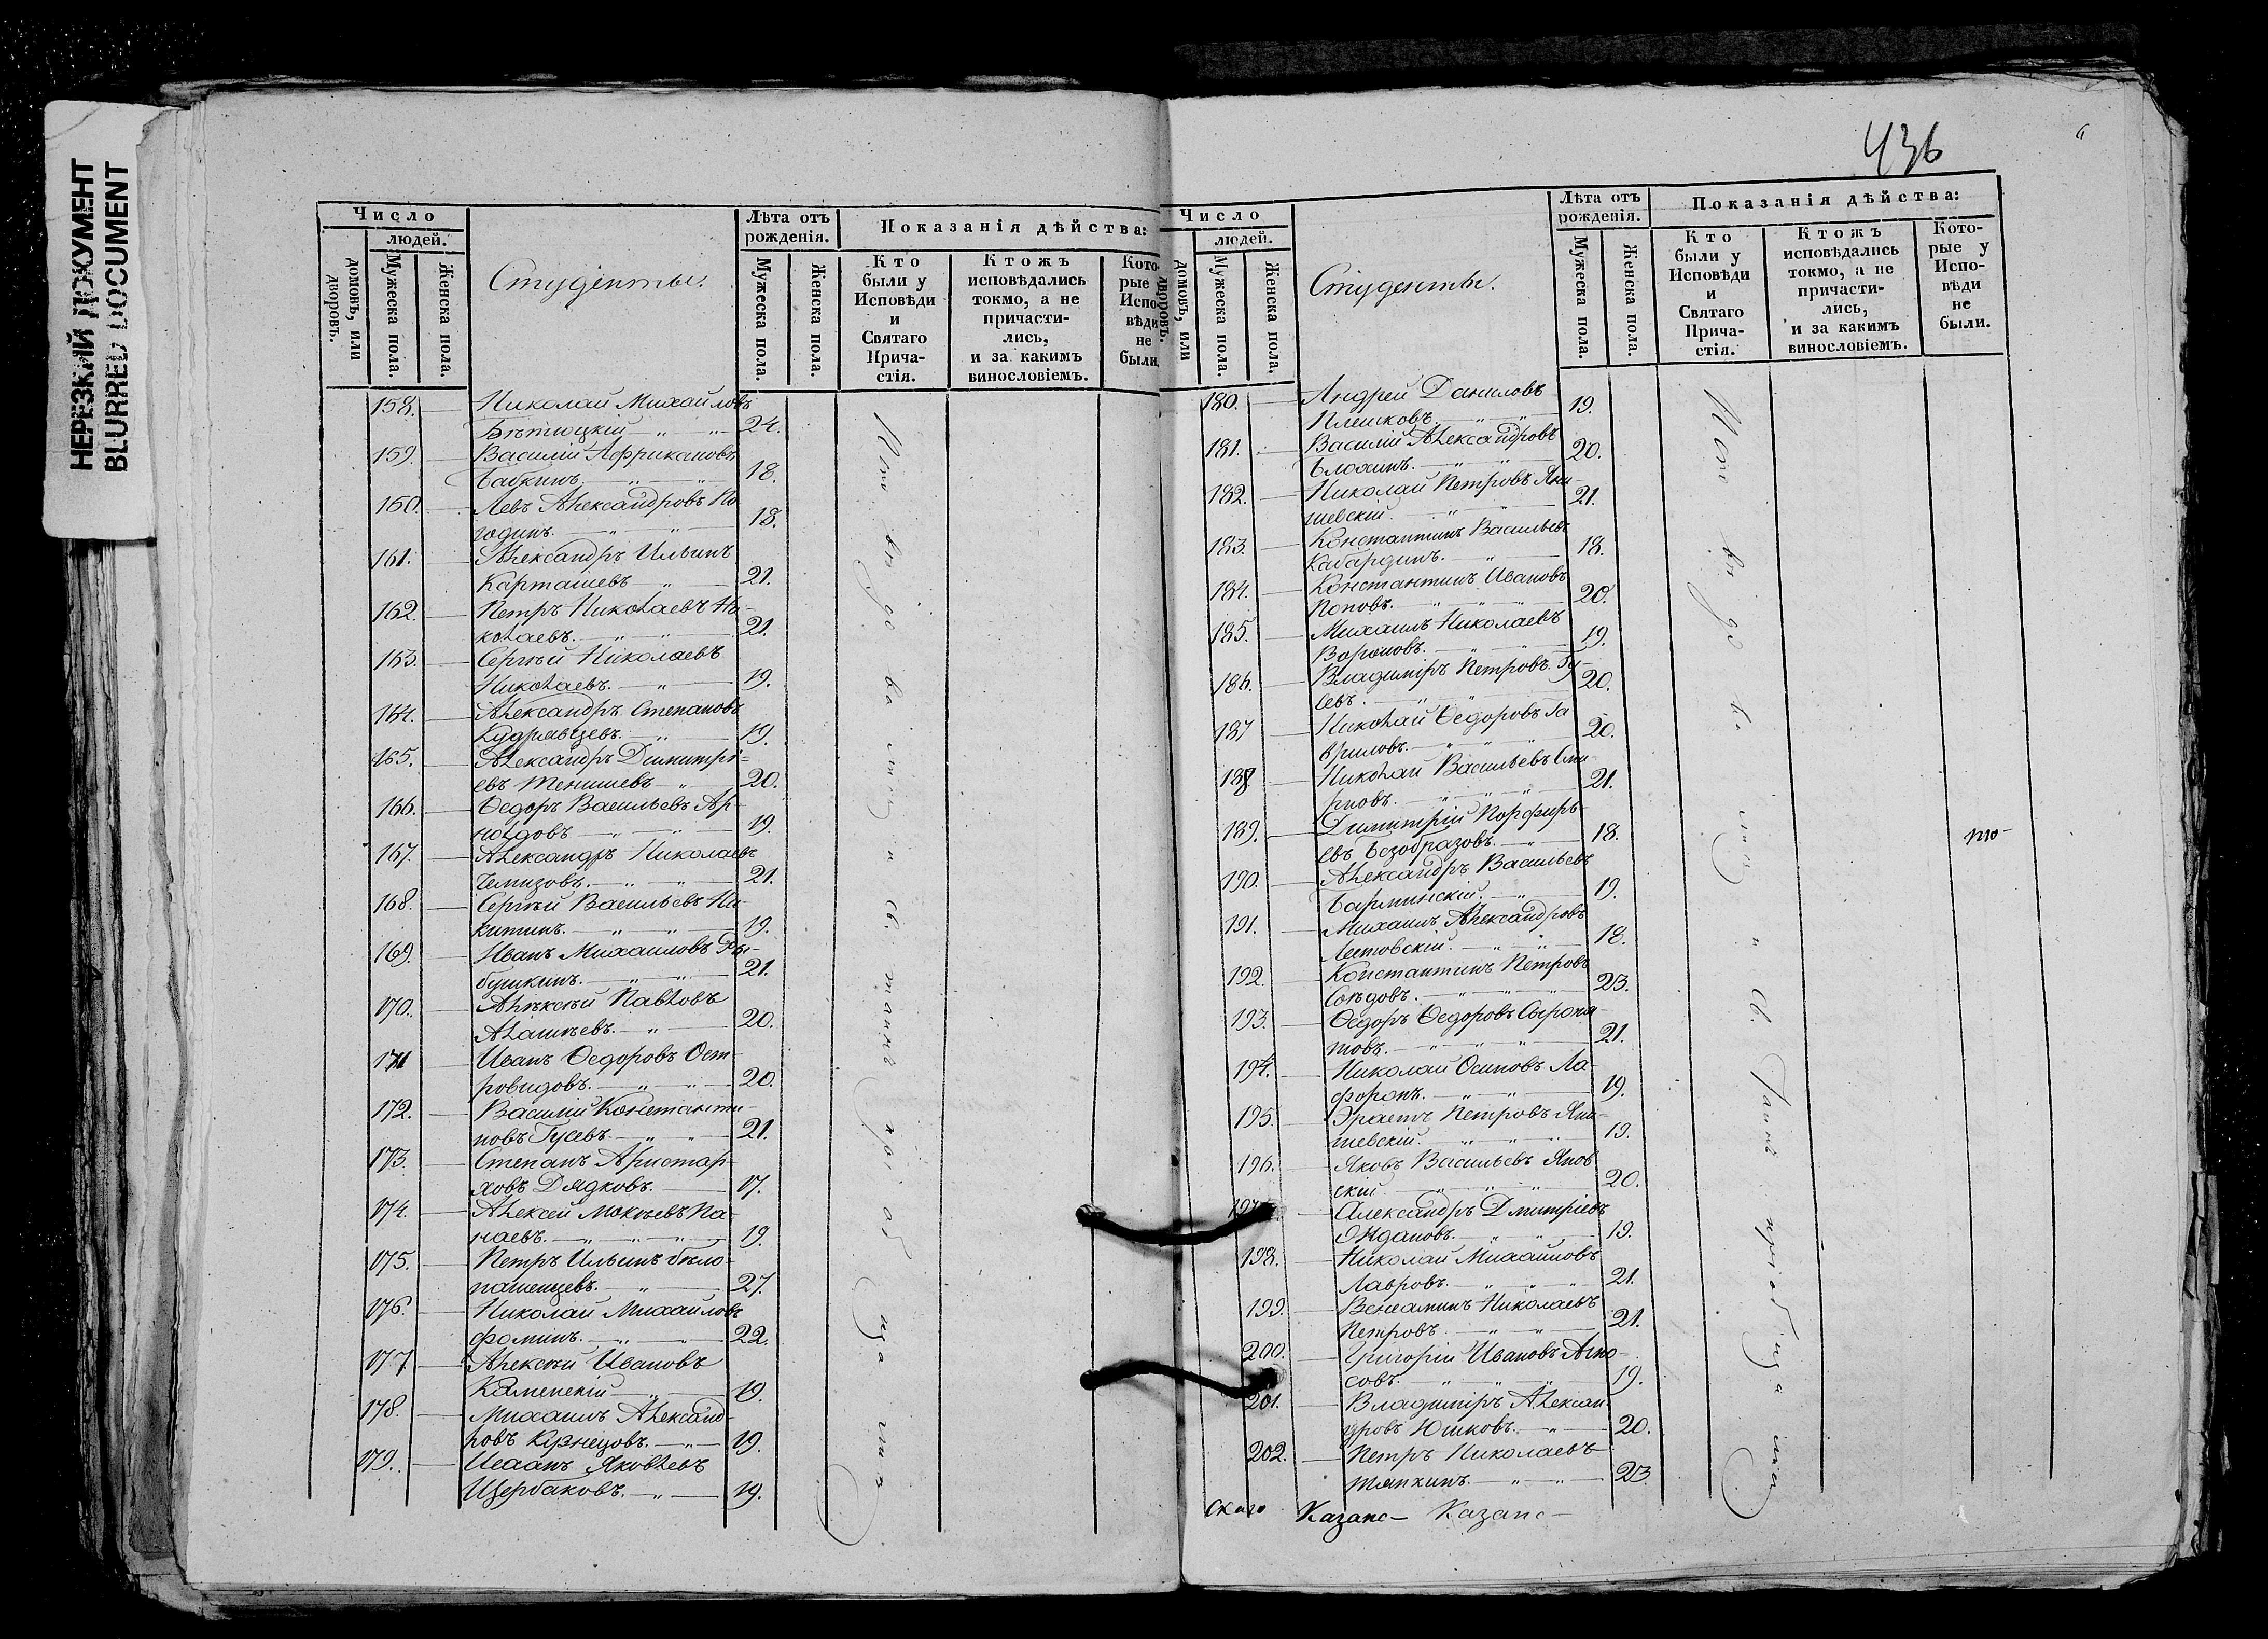 НЕРЕЗКИЙ ДОКУМЕНТ
BLURRED DOCUMENT
Число
людей.
домовъ, или дворовъ.
Мужеска пола.
Женска пола.
Студенты.
Лѣта отъ рожденія.
Мужеска пола.
Женска пола.
Показанія дѣйства:
Кто были у Исповѣди и Святаго Прича-стія.
Ктожъ исповѣдались токмо, а не причасти-лись, и за какимъ винословіемъ.
Кото-рые Испо-вѣди не были.
158. Николай Михайловъ
24.
159. Василій Африкановъ
Бабкинъ. 18.
160. Левъ Александровъ По
годинъ. 18.
161. Александръ Ильинъ
Карташевъ 21.
162. Петръ Николаевъ Ни-
колаевъ. 21.
163. Сергѣй Николаевъ
Николаевъ. 19.
164. Александръ Степановъ
Кудрявцевъ. 19.
165. Александръ Димитрі-
евъ Тенишевъ 20.
166. Ѳедоръ Васильевъ Ар-
нольдовъ 19.
167. Александръ Николаевъ
Чемизовъ. 21.
168. Сергѣй Васильевъ Ни-
китинъ. 19.
169. Иванъ Михайловъ Ры-
бушкинъ. 21.
170. Алексѣй Павловъ
Алашеевъ. 20.
171 Иванъ Ѳедоровъ Ост-
ровидовъ. 20.
172. Василій Константи-
новъ Гусевъ. 21.
173. Степанъ Аристар-
ховъ Дядковъ. 17.
174. Алексѣй Мокѣевъ Па-
наевъ. 19.
175. Петръ Ильинъ Бѣло-
пашенцевъ. 27.
176. Николай Михайловъ
Фоминъ. 22.
177 Алексѣй Ивановъ
Каменскій 19.
178. Михаилъ Александ-
ровъ Кузнецовъ. 19.
179. Исаакъ Яковлевъ
Щербаковъ. 19.
436
Число
людей.
домовъ, или дворовъ.
Мужеска пола.
Женска пола.
Студенты.
Лѣта отъ рожденія.
Мужеска пола.
Женска пола.
Показанія дѣйства:
Кто были у Исповѣди и Святаго Прича-стія.
Ктожъ исповѣдались токмо, а не причасти-лись, и за какимъ винословіемъ.
Кото-рые у Испо-вѣди не были.
180. Андрей Даниловъ
Плешковъ. 19.
181. Василій Александровъ
Блохинъ. 20.
182. Николай Петровъ Яни-
шевскій. 21.
183. Константинъ Васильевъ
Кабардинъ. 18.
184. Константинъ Ивановъ
Поповъ. 20.
185. Михаилъ Николаевъ
Вороновъ. 19.
186. Владиміръ Петровъ Гу-
севъ. 20.
187 Николай Ѳедоровъ Га
вриловъ. 20.
188 Николай Васильевъ Сми
рновъ. 21.
189. Димитрій Порфирь-
евъ Безобразовъ. 18.
190. Александръ Васильевъ
Барминскій. 19.
191. Михаилъ Александровъ
18.
192. Константинъ Петровъ
23.
193. Ѳедоръ Ѳедоровъ Сыромя-
товъ. 21.
194. Николай Осиповъ Ла-
форонъ. 19.
195. Эрастъ Петровъ Яни-
шевскій. 19.
196. Яковъ Васильевъ Янов
скій. 20.
197. Александръ Дмитріевъ
Юдановъ. 19.
198. Николай Михайловъ
Лавровъ. 21.
199. Веніаминъ Николаевъ
Петровъ. 21.
200. Григорій Ивановъ
совъ. 19.
201. Владиміръ Алексан
дровъ Юшковъ. 20.
202. Петръ Николаевъ
Тяпкинъ. 23.
скаго Казанс- Казанс-